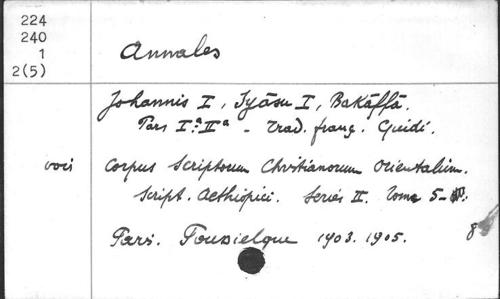 224
240
1
2(5)
Annales
Johannis I, Iyāsu I, Bakāffā.
Pars Iª. IIª - Trad. franç. Guidi.
voci Corpus Scriptorum Christianorum Orientalium.
Script. Aethiopici. Series II. Tome 5-
Pars. Poussielgue 1903. 1905. 8